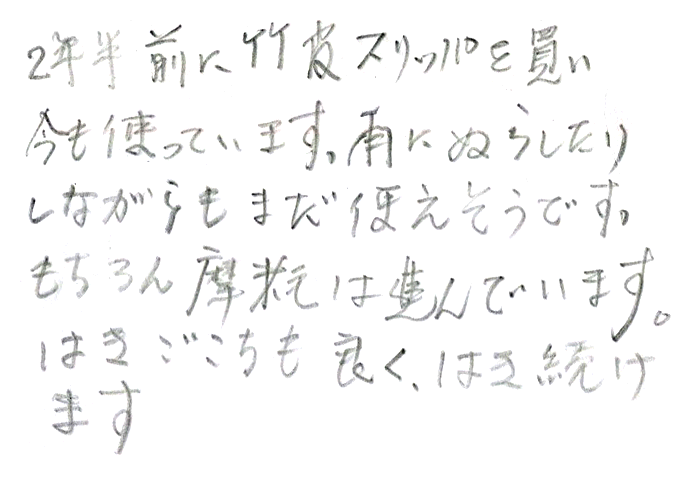 2年半前に竹皮スリッパを買い
今も使っています。雨にぬらしたり
しながらもまだ使えそうです。
もちろん摩耗は進んでいます。
はきごこちも良く、はき続け
ます